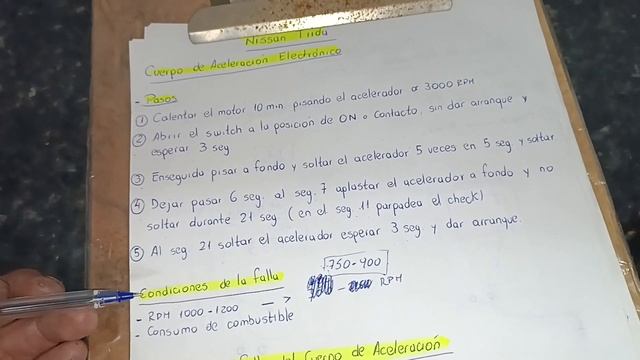 Nissan Tiida
Cuerpo de Aceleracion Electrónico
- Pasos
① Calentar el motor 10 min. pisando el acelerador a 3000 RPM
② Abrir el switch a la posicion de ON o contacto, sin dar arranque y
esperar 3 seg
③ Enseguida pisar a fondo y soltar el acelerador 5 veces en 5 seg. y soltar
④ Dejar pasar 6 seg. al seg. 7 aplastar el acelerador a fondo y no
soltar durante 21 seg (en el seg. 11 parpadea el check)
⑤ Al seg 21 soltar el acelerador esperar 3 seg y dar arranque.
750-900
Condiciones de la falla
- RPM 1000-1200 -> - RPM
- Consumo de combustible
del Cuerpo de Aceleración